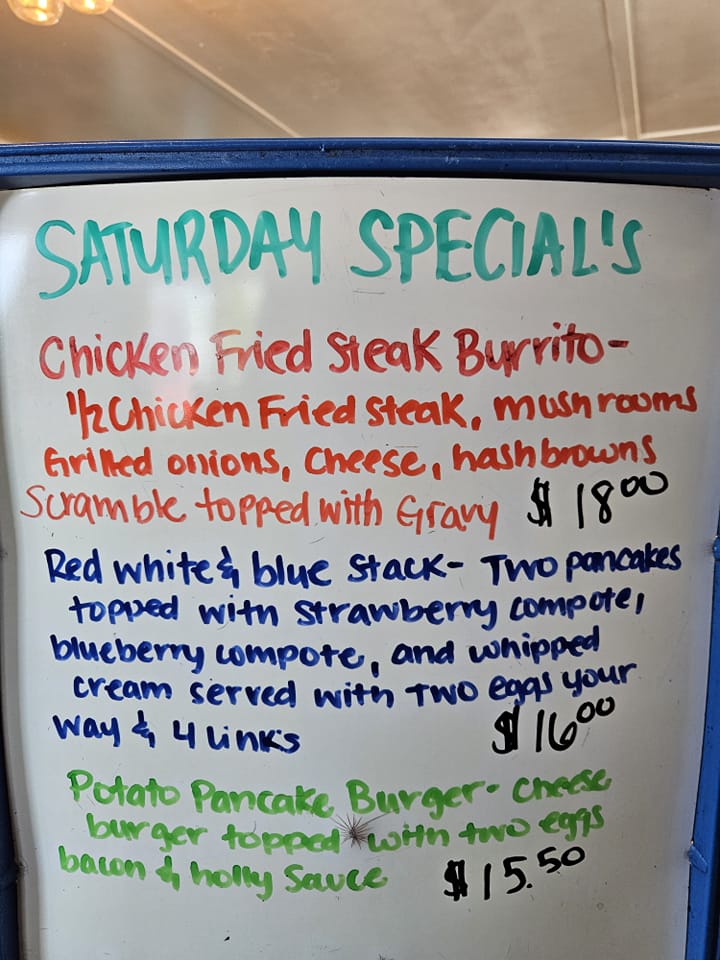 SATURDAY SPECIAL'S
Chicken Fried Steak Burrito-
1/2 Chicken Fried steak, mushrooms
Grilled onions, cheese, hashbrowns
Scramble topped with Gravy $ 18.00
Red white & blue Stack- Two pancakes
topped with strawberry compote,
blueberry compote, and whipped
cream served with two eggs your
way & 4 links $ 16.00
Potato Pancake Burger- cheese
burger topped with two eggs
bacon & holly Sauce $ 15.50